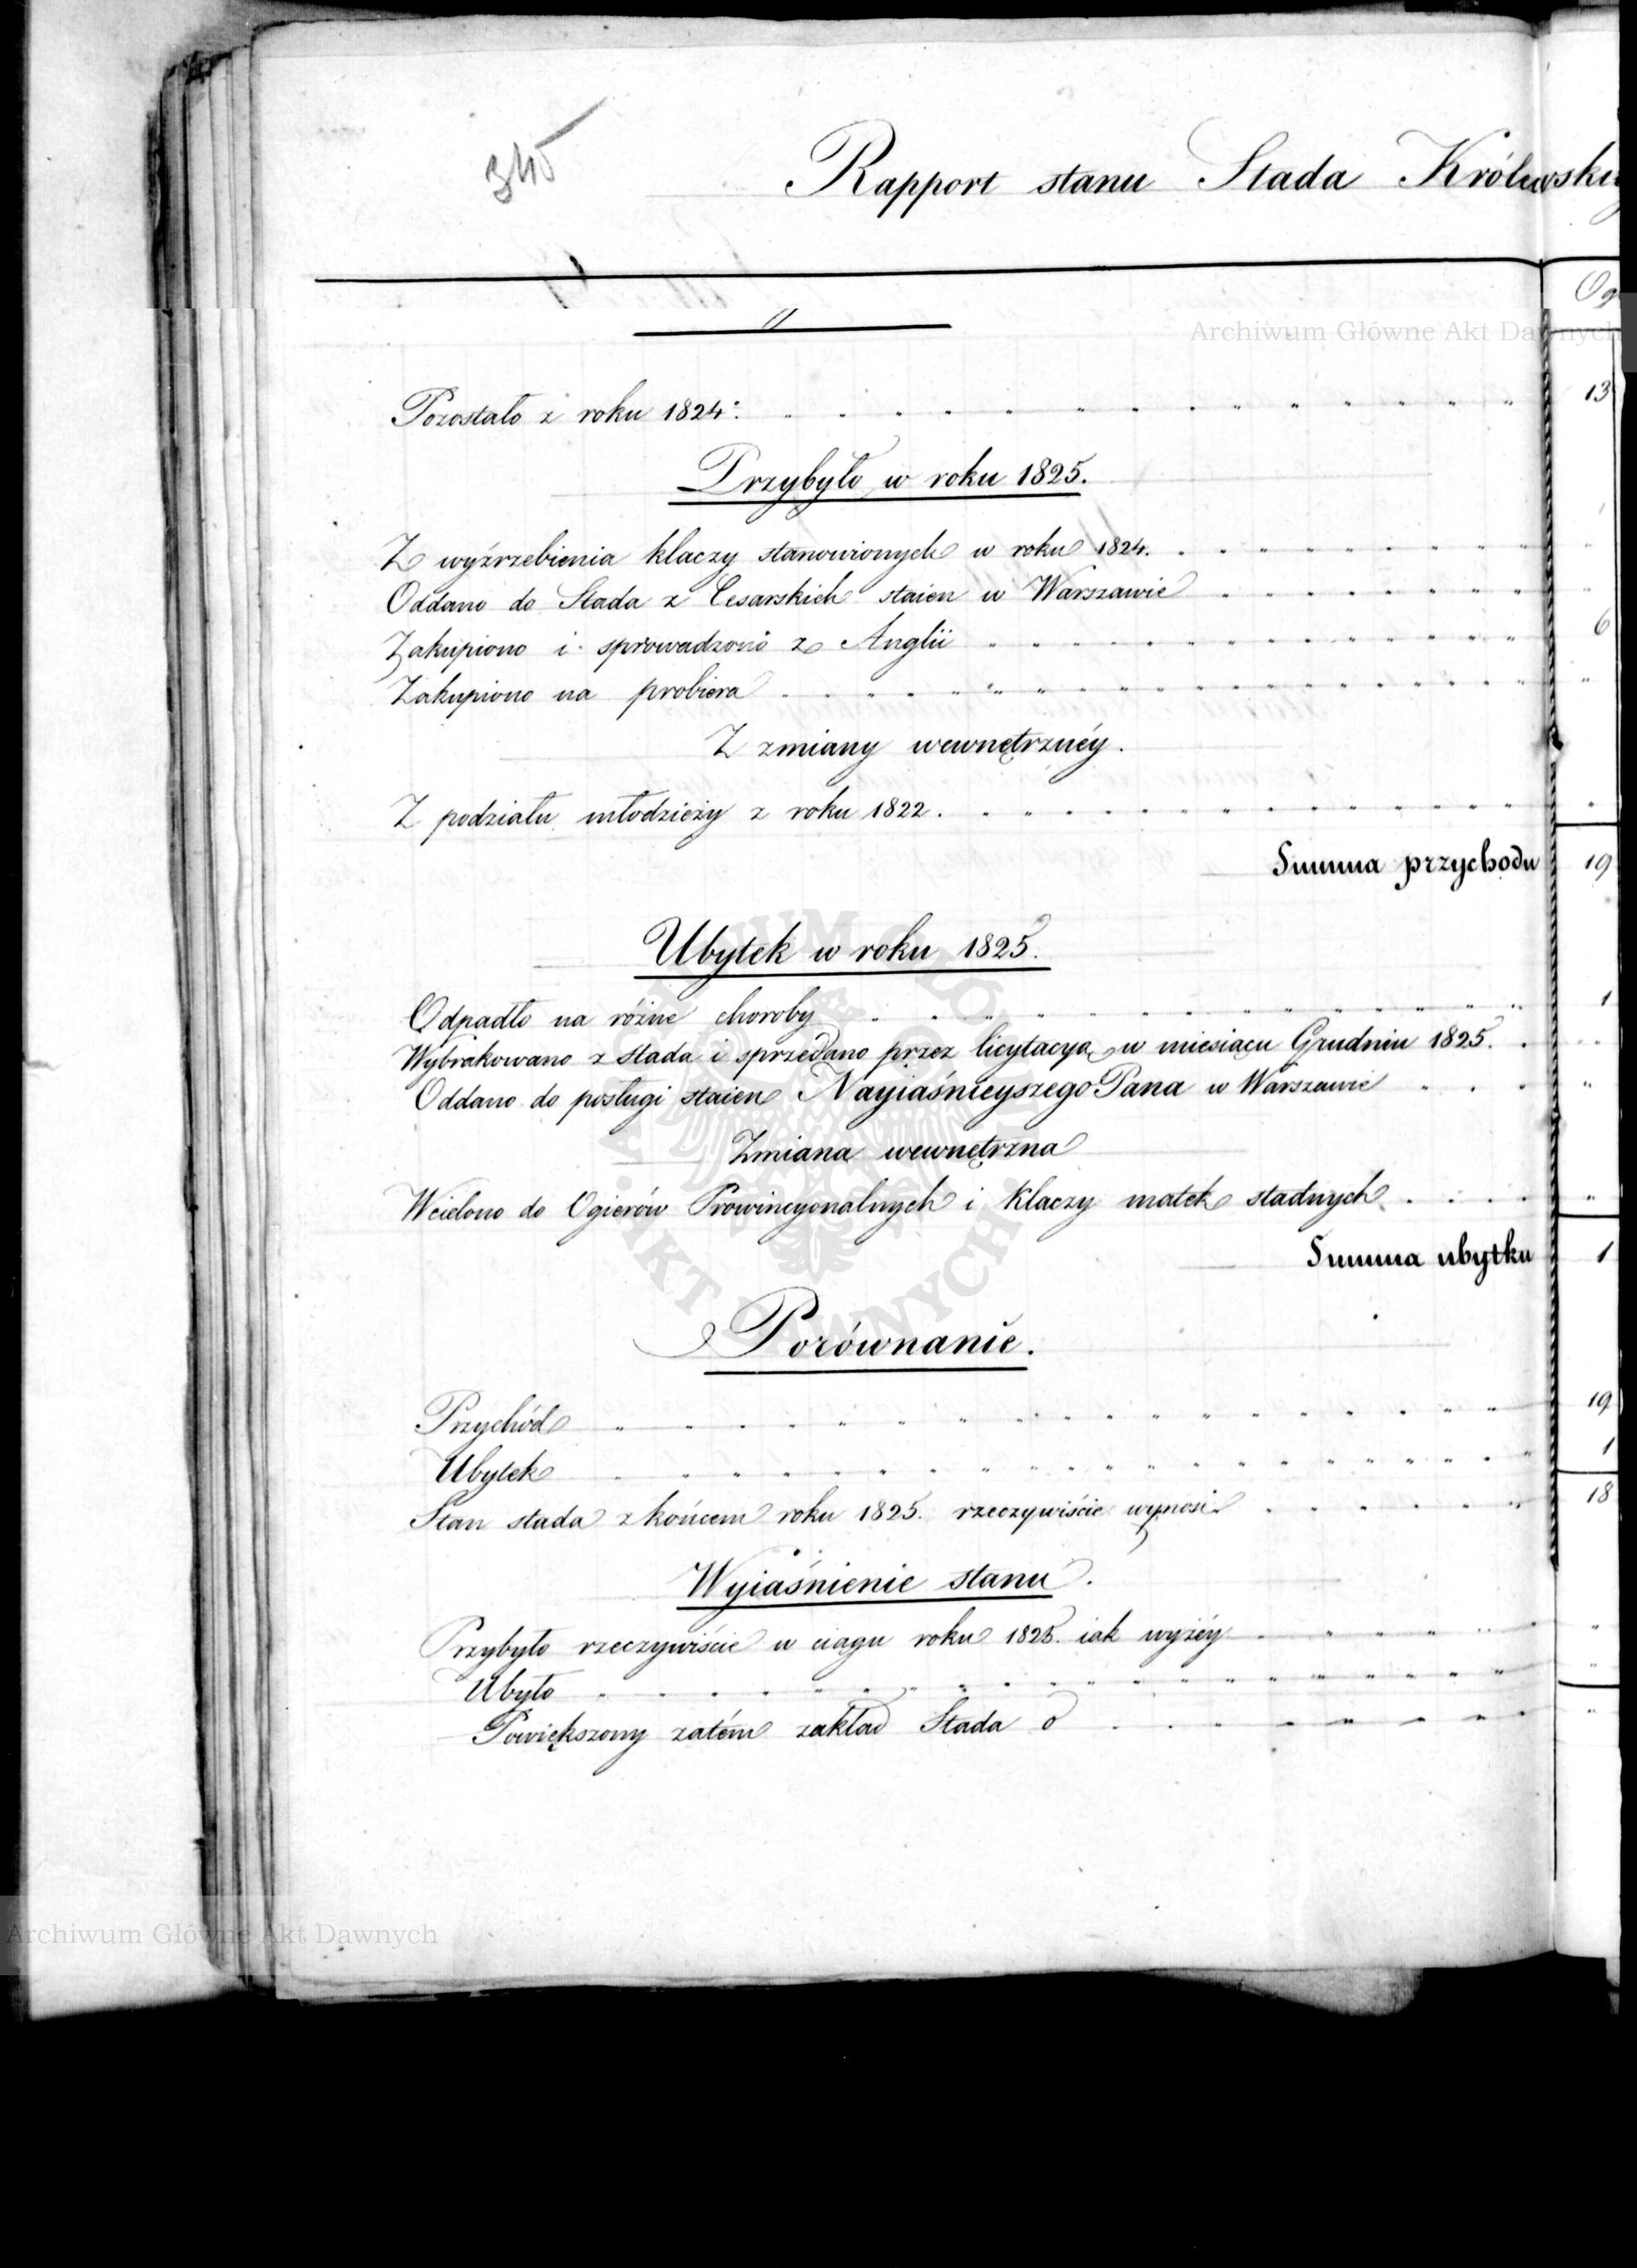 345
Rapport stanu Stada Królewski
Og
Archiwum Główne Akt Dawnych
Pozostało z roku 1824. 13
Przybyło w roku 1825.
Z wyźrzebienia klaczy stanowionych w roku 1824. "
Oddano do Stada z Cesarskich staien w Warszawie "
Zakupiono i sprowadzono z Anglii 6
Zakupiono na probiera "
Z zmiany wewnętrznéy.
Z podziału młodzieży z roku 1822. "
Summa przychodu 19
Ubytek w roku 1825.
Odpadło na różne choroby 1
Wybrakowano z stada i sprzedano przez licytacyą w miesiącu Grudniu 1825. "
Oddano do posługi staien Nayiaśnieyszego Pana w Warszawie "
Zmiana wewnętrzna
Wcielono do Ogierów Prowincyonalnych i Klaczy matek stadnych "
Summa ubytku 1
Porównanie.
Przychód 19
Ubytek 1
Stan stada z końcem roku 1825. rzeczywiście wynosi 18
Wyiaśnienie stanu.
Przybyło rzeczywiście w ciągu roku 1825. iak wyżéy "
Ubyło "
Powiększony zatém zakład Stada o "
Archiwum Główne Akt Dawnych